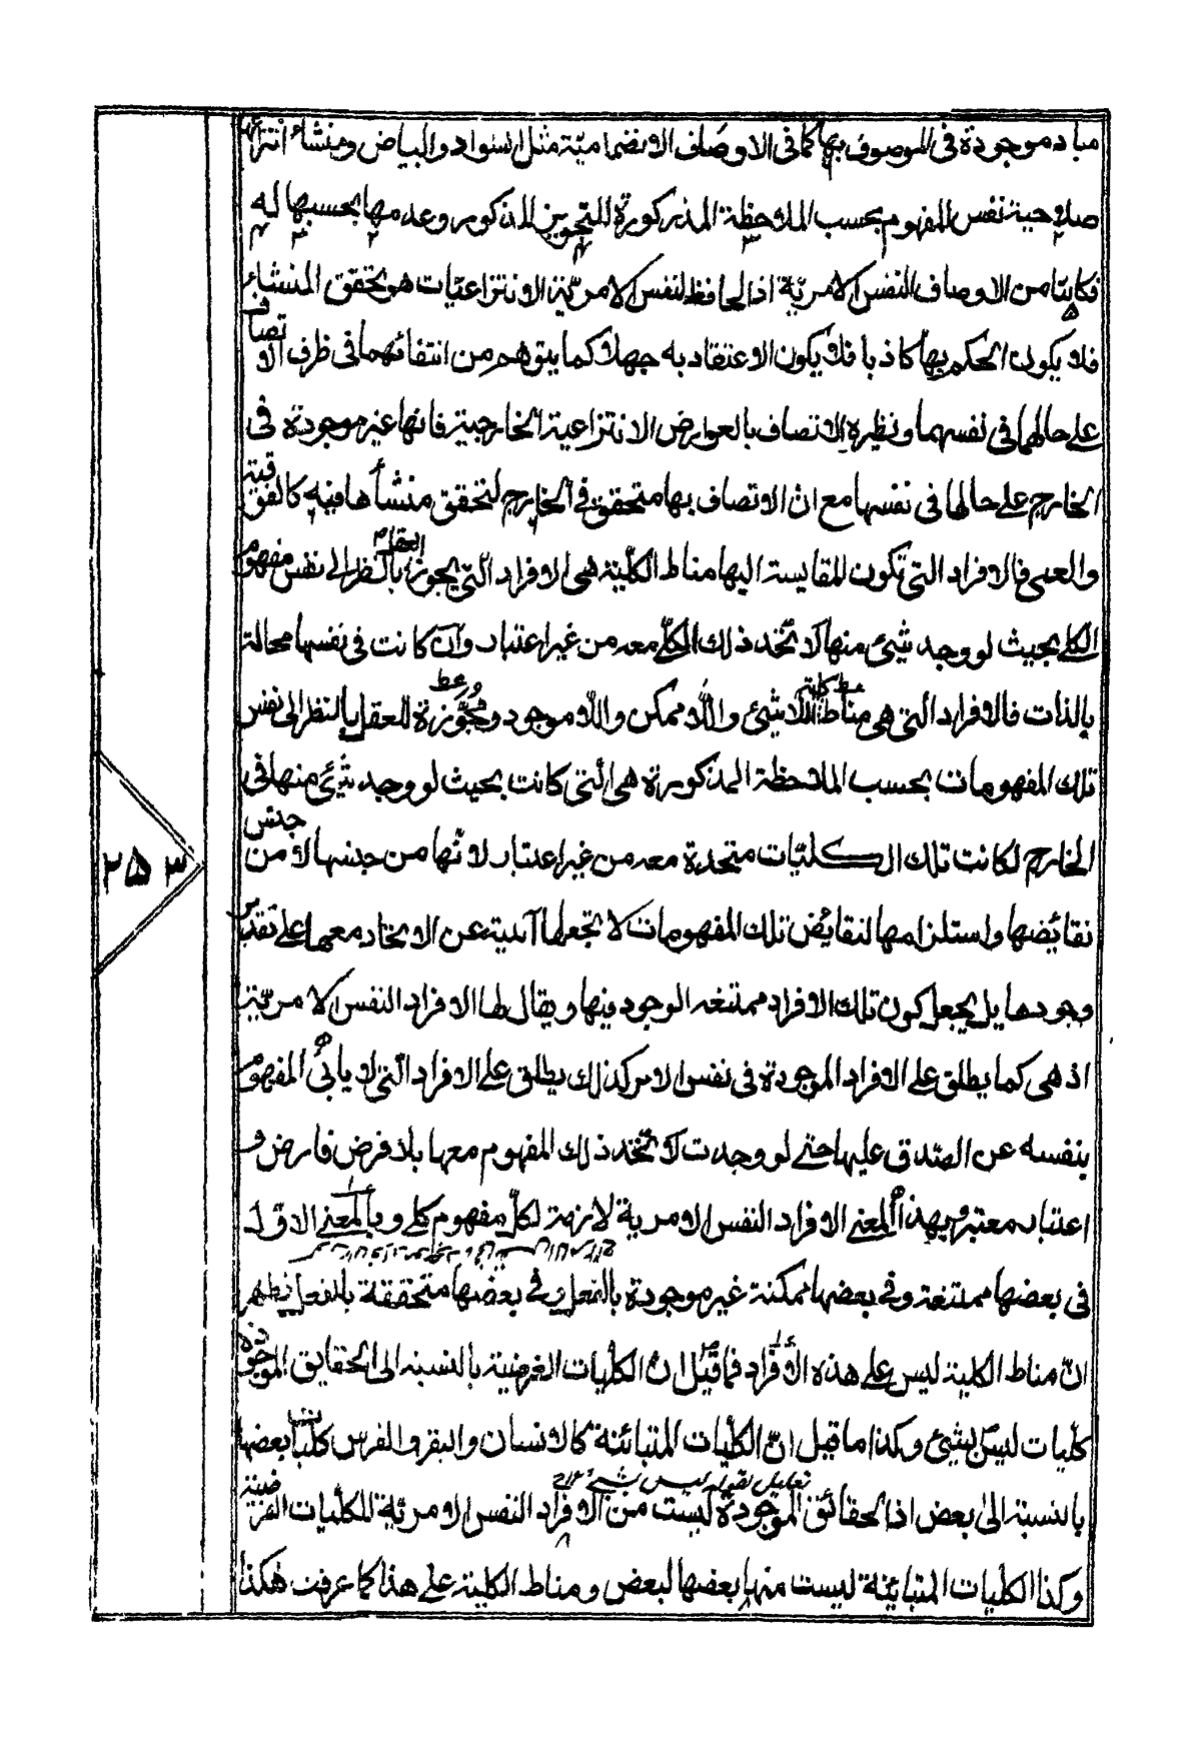 مباد موجودة فى الموصوف بها كما فى الاوصاف الانضمامية مثل السواد والبياض ومنشاء انتزاعها
صلاحية نفس المفهوم بحسب الملاحظة المذكورة للتجويز المذكور وعدمها بحسبها ليه
فكانتا من الاوصاف النفس الامريّة اذ الحافظ لنفس الامريّة الانتزاعيّات هو تحقق المنشاء
فلا يكون الحكم بها كاذبا فلا يكون الاعتقاد به جهلا كما يتوهم من انتفائهما فى ظرف الاتصاف
على حالهما فى نفسهما ونظيره الاتصاف بالعوارض الانتزاعية الخارجية فانها غير موجودة فى
الخارج على حالها فى نفسها مع ان الاتصاف بها متحقق فى الخارج لتحقق منشأها فيه كالفوقية
والعمى فالافراد التى تكون المقايسة اليها مناط الكلّية هى الافراد الّتى يجوز العقل بالنظر الى نفس مفهوم
الكلى بحيث لو وجد شيئ منها لاتّحد ذلك الكلّى معه من غير اعتبار وان كانت فى نفسها محالة
بالذات فالافراد التى هى مناط كلية اللاشيئ واللاممكن واللاموجود مجوّزة للعقل بالنظر الى نفس
تلك المفهومات بحسب الملاحظة المذكورة هى الّتى كانت بحيث لو وجد شيئ منها فى
الخارج لكانت تلك الكليّات متحدة معه من غير اعتبار لانّها من جنسها لا من جنس
نقائضها واستلزامها لنقائض تلك المفهومات لا تجعلها آبية عن الاتحاد معها على تقدير
وجودها بل يجعل كون تلك الافراد ممتنعه الوجود فيها ويقال لها الافراد النفس الامريّة
اذ هى كما يطلق على الافراد الموجودة فى نفس الامر كذلك يطلق على الافراد الّتى لا يابىٰ المفهوم
بنفسه عن الصّدق عليها حتى لو وجدت لاتّحد ذلك المفهوم معها بلا فرض فارض و
اعتبار معتبر وبهذا المعنى الافراد النفس الامرية لازمة لكلّ مفهوم كلى وبالمعنى الاوّل
فى بعضها ممتنعة وفى بعضها ممكنة غير موجودة بالفعل وفى بعضها متحققة بالفعل فظهر
انّ مناط الكلية ليس على هذه الافراد فما قيل ان الكليات الفرضية بالنسبة الى الحقايق الموجودة
كلّيات ليس بشيئ وكذا ما قيل انّ الكلّيات المتبائنة كالانسان والبقر والفرس كليات بعضها
تعليل لقوله ليس بشيئ ١٢
بالنسبة الىٰ بعض اذ الحقائق الموجودة ليست من الافراد النفس الامريّة للكلّيات الفرضية
وكذا الكليات المتبائنة ليست منها بعضها لبعض ومناط الكلية على هذا كما عرفت هكذا
٢٥٣